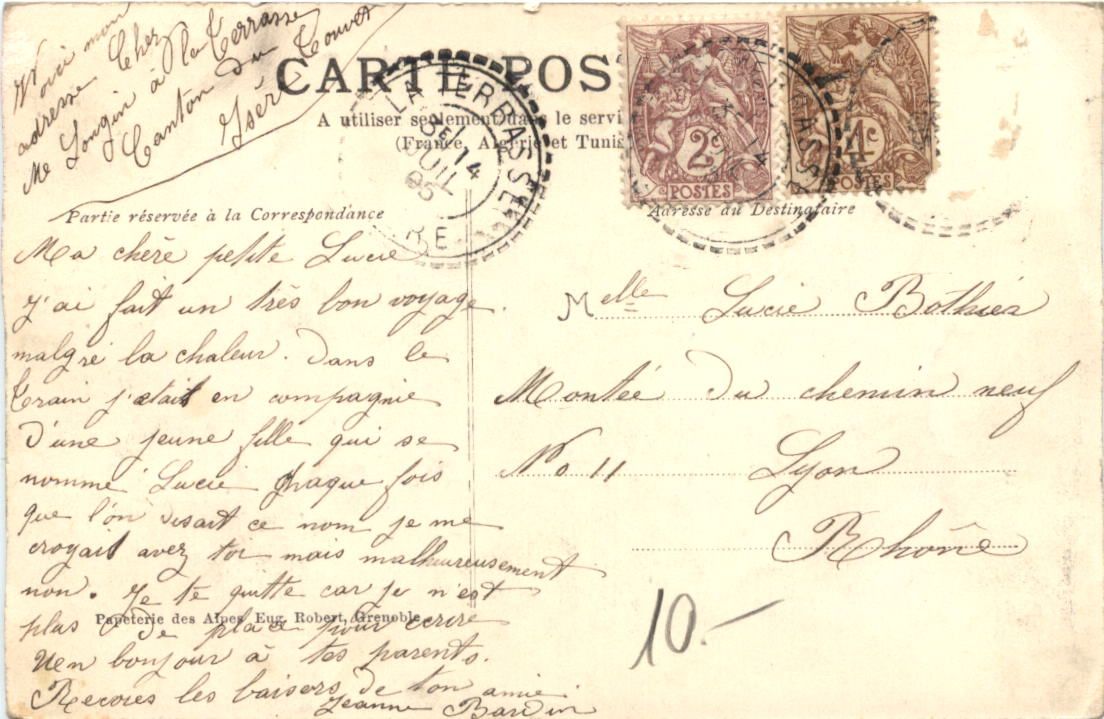 Voici mon
adresse Chez
Me Longin à la Terrasse
Canton du Touvet
Isère
CARTE POS
A utiliser seulement dans le servi
(France, Algérie et Tunis
LA TERRASSE
14
JUIL
05
RE
2c
POSTES
4c
POSTES
Partie réservée à la Correspondance
Adresse du Destinataire
Ma chère petite Lucie
J'ai fait un très bon voyage
malgré la chaleur. Dans le
train j'etait en compagnie
d'une jeune fille qui se
nommé Lucie chaque fois
que l'on disait ce nom je me
croyait avez toi mais malheureusement
non. Je te quitte car je n'est
plus de place pour ecrire
Uen bonjour à tes parents.
Recoies les baisers de ton amie
Jeanne Bardin
Melle Lucie Bothier
Montée du chemin neuf
No 11 Lyon
Rhône
Papeterie des Alpes, Eug. Robert, Grenoble
10.-